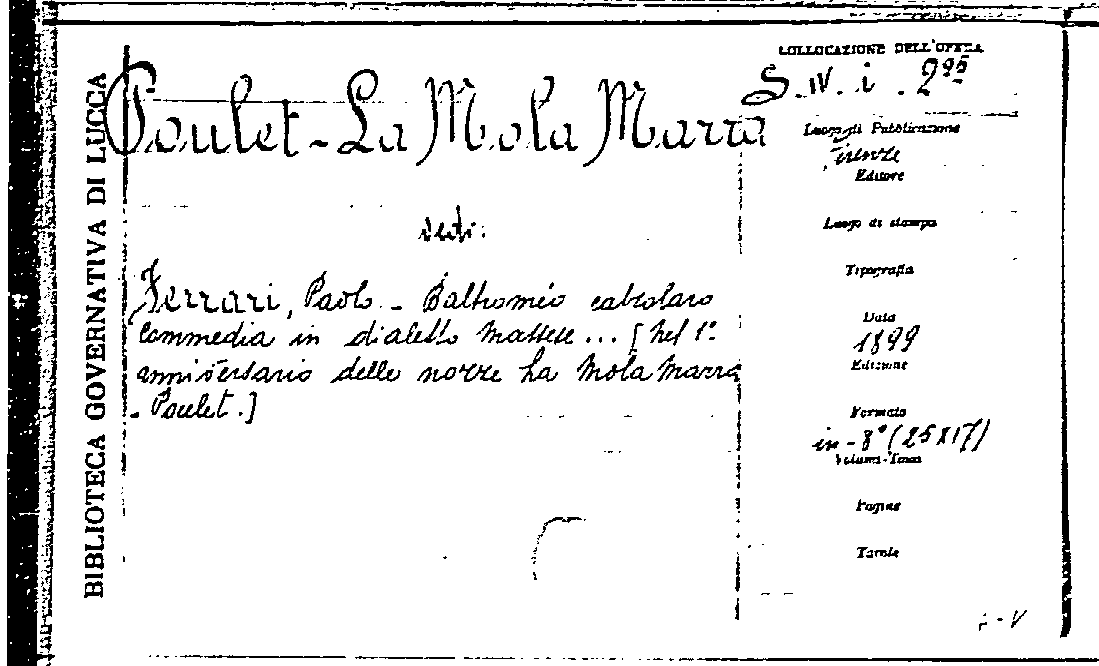 BIBLIOTECA GOVERNATIVA DI LUCCA
Poulet - La Mola Marra
vedi:
Ferrari, Paolo - Baltromèo calzolaro
Commedia in dialetto Massese ... [Nel 1°
anniversario delle nozze La Mola Marra
- Poulet.]
COLLOCAZIONE DELL'OPERA
S. IV. i. 295
Luogo di Pubblicazione
Firenze
Editore
Luogo di stampa
Tipografia
Data
1899
Edizione
Formato
in-8° (25x17)
Volumi-Tomi
Pagine
Tavole